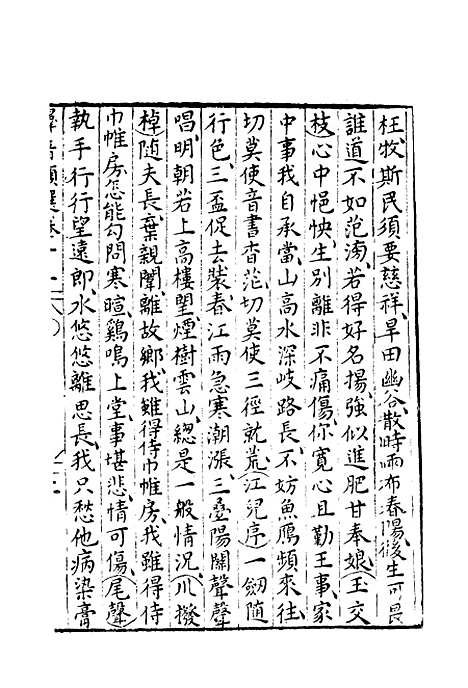 枉牧斯民須要慈祥旱田幽谷散時雨布春陽後生可畏
誰道不如范滂若得好名揚強似進肥甘奉娘玉交
枝心中悒怏生別離非不痛傷你寬心且勤王事家
中事我自承當山高水深岐路長不妨魚鴈頻來往
切莫使音書杳茫切莫使三徑就荒江兒序一劒隨
行色三盃促去裝春江雨急寒潮漲三疊陽關聲聲
唱明朝若上高樓望煙樹雲山總是一般情況川撥
棹隨夫長棄親闈離故鄉我難得侍巾帷房我雖得侍
巾帷房怎能勾問寒暄鷄鳴上堂事堪悲情可傷尾聲
執手行行望遠郎水悠悠離思長我只愁他病染膏
群音類選卷十